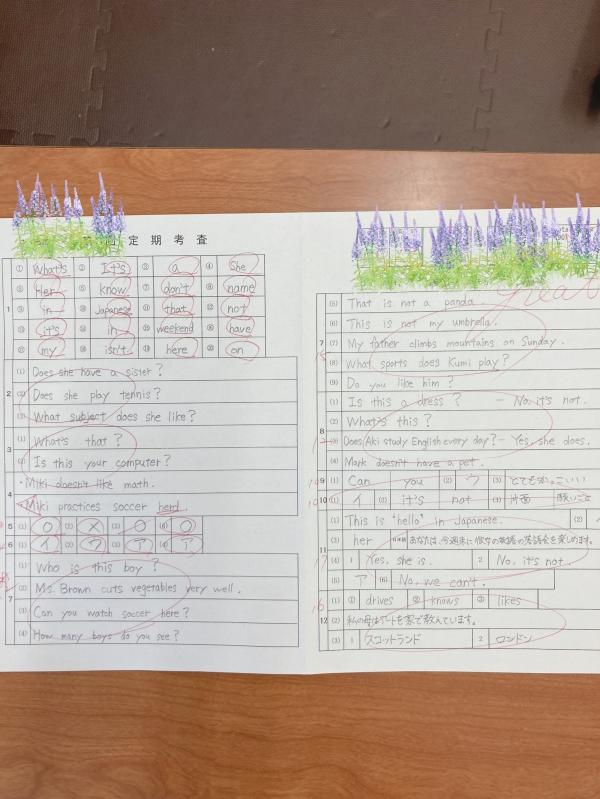 定期考査
1 ① What's ② It's ③ a ④ She
⑤ Her ⑥ know ⑦ don't ⑧ name
⑨ in ⑩ Japanese ⑪ that ⑫ not
⑬ it's ⑭ in ⑮ weekend ⑯ have
⑰ my ⑱ isn't ⑲ here ⑳ on
2 (1) Does she have a sister?
(2) Does she play tennis?
(3) What subject does she like?
3 (1) What's that?
(2) Is this your computer?
4 ・Miki doesn't like math.
Miki practices soccer hard.
5 (1) ○ (2) × (3) ○ (4) ○
6 (1) イ (2) ウ (3) ア (4) ア
7 (1) Who is this boy?
(2) Ms. Brown cuts vegetables very well.
(3) Can you watch soccer here?
(4) How many boys do you see?
Great
7 (5) That is not a panda.
(6) This is not my umbrella.
(7) My father climbs mountains on Sunday.
(8) What sports does Kumi play?
(9) Do you like him?
8 (1) Is this a dress? - No, it's not.
(2) What's this?
(3) Does Aki study English every day? - Yes, she does.
(4) Mark doesn't have a pet.
9 (1) Can you (2) ウ (3) とてもかっこいい
10 (1) イ (2) it's not (3) 片面
11 (1) This is "hello" in Japanese. (2)
(3) her あなたは、今週末に彼女の英語の落語会を楽しめます。
(4) 1 Yes, she is. 2 No, it's not.
(5) ア (6) No, we can't.
12 (1) ① drives ② knows ③ likes
(2) 私の母はアートを家で教えています。
(3) 1 スコットランド 2 ロンドン